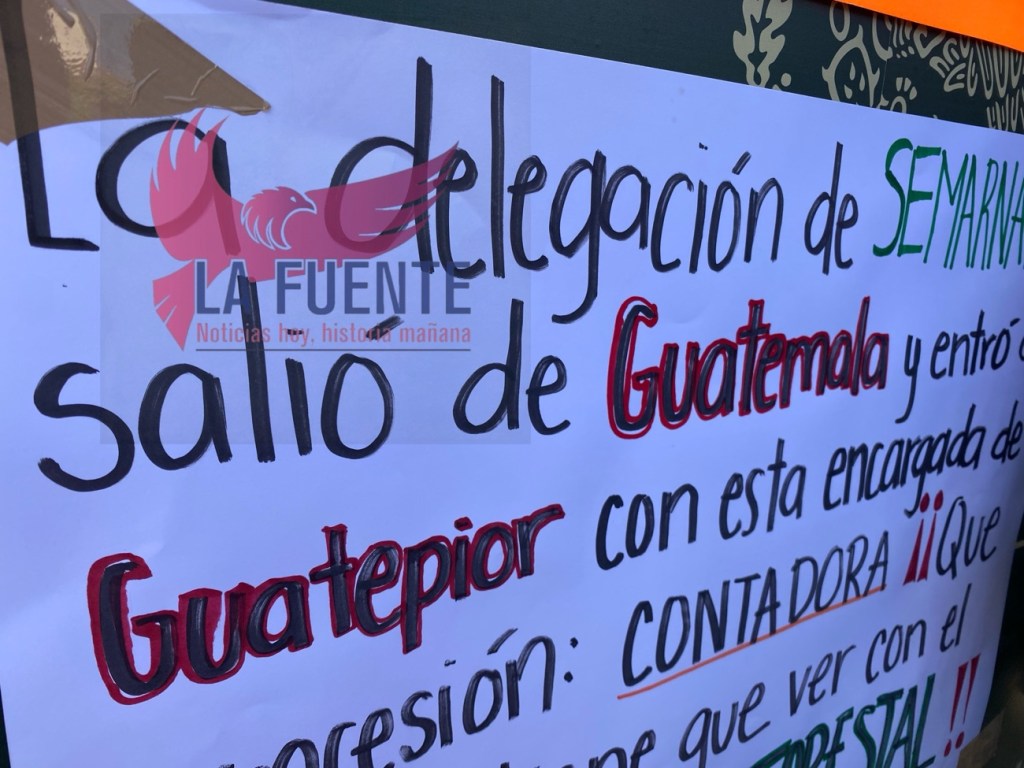 La delegación de SEMARNA
salió de Guatemala y entró
Guatepior con esta encargada de
profesión: CONTADORA ¡¡Que
que ver con el
LA FUENTE
Noticias hoy, historia mañana